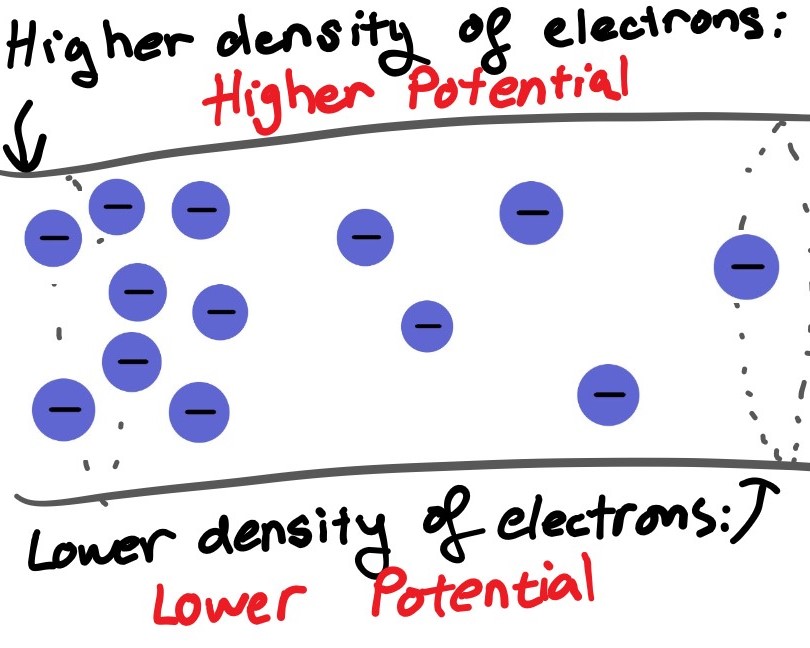 Higher density of electrons:
Higher Potential
Lower density of electrons:
Lower Potential